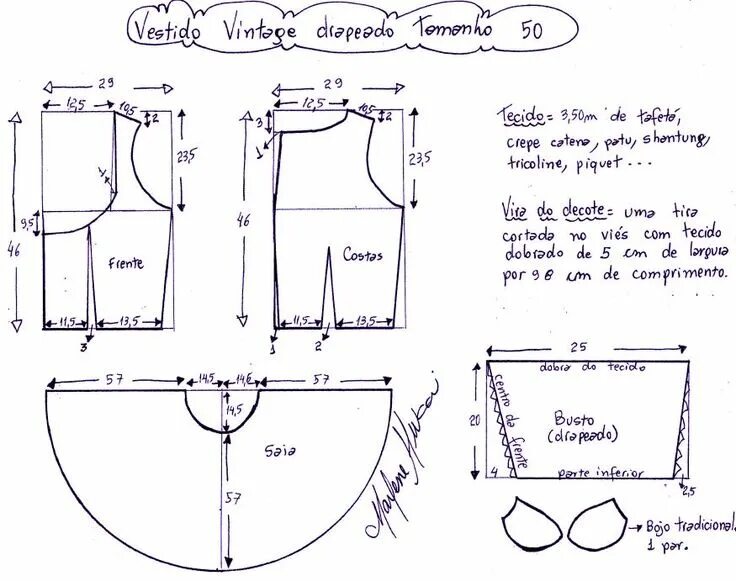 Vestido Vintage drapeado Tamanho 50
29
12,5
10,5
2
23,5
46
9,5
Frente
11,5
13,5
3
29
12,5
10,5
2
3
23,5
46
Costas
11,5
13,5
1
2
Tecido = 3,50m de tafetá,
crepe catena, patu, shantung,
tricoline, piquet ...
Vira do decote = uma tira
cortada no viés com tecido
dobrado de 5 cm de largura
por 98 cm de comprimento.
57
14,5
14,6
57
14,5
Saia
57
Marlene Mukai
25
dobra do tecido
20
centro da frente
Busto
(drapeado)
4
parte inferior
2,5
Bojo tradicional
1 par.